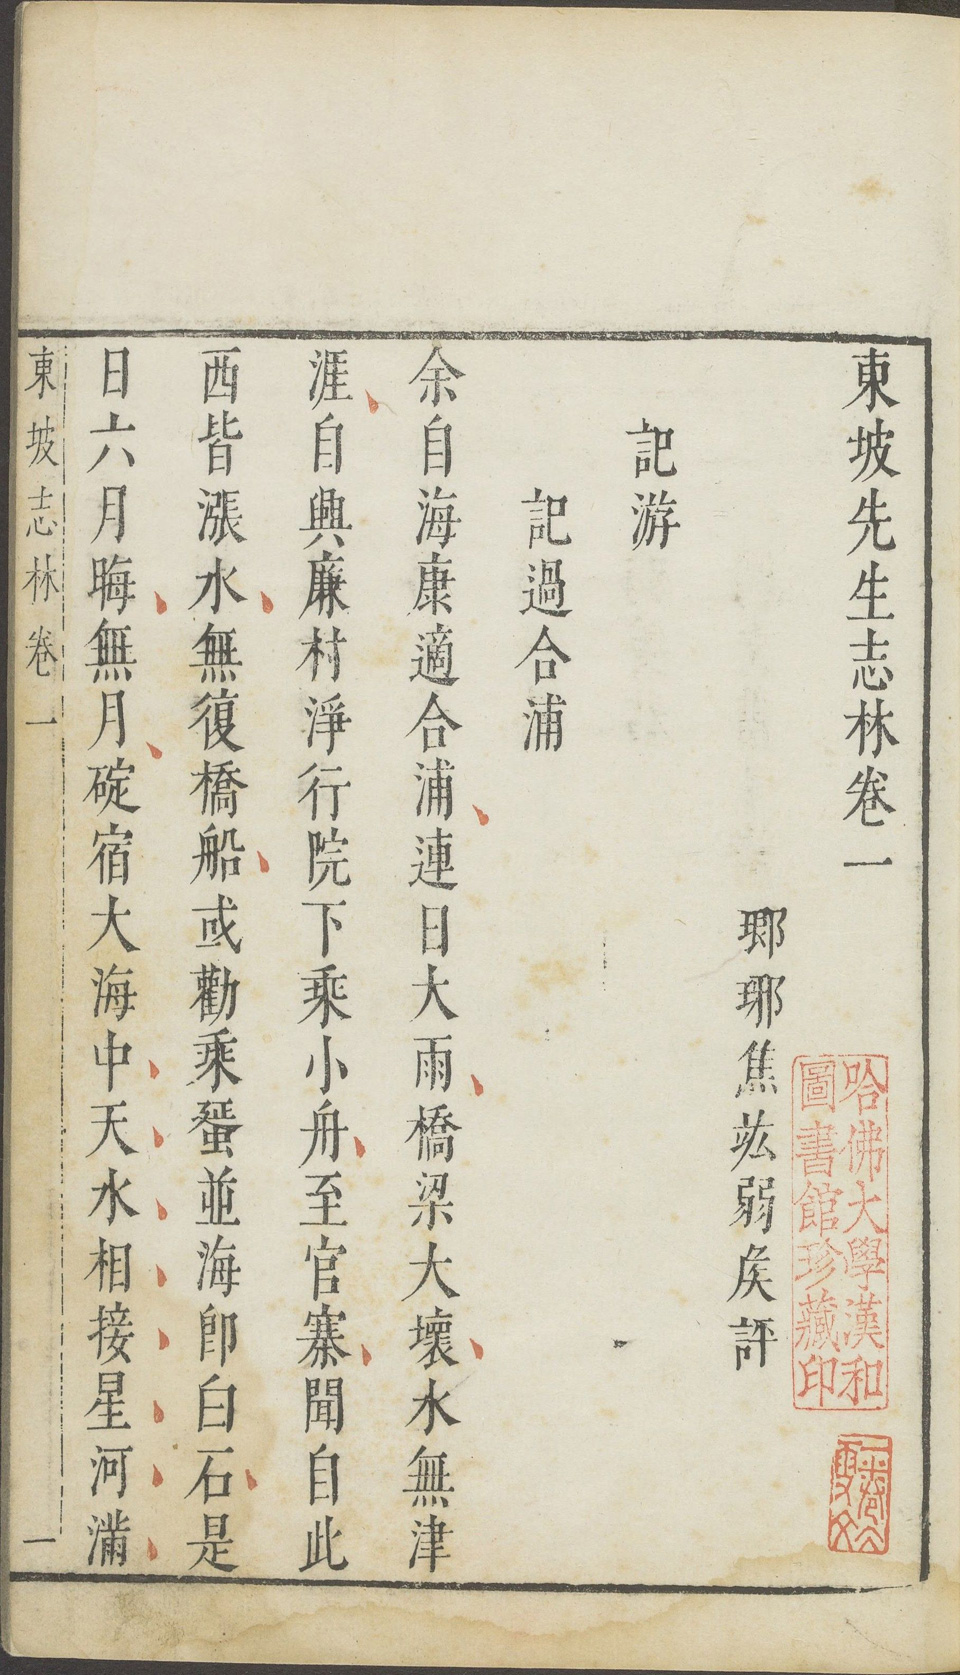 東坡先生志林卷一
瑯琊焦竑弱侯評
記游
記過合浦
余自海康適合浦連日大雨橋梁大壞水無津
涯自興廉村淨行院下乘小舟至官寨聞自此
西皆漲水無復橋船或勸乘蜑並海卽白石是
日六月晦無月碇宿大海中天水相接星河滿
東坡志林卷一
一
哈佛大學漢和
圖書館珍藏印